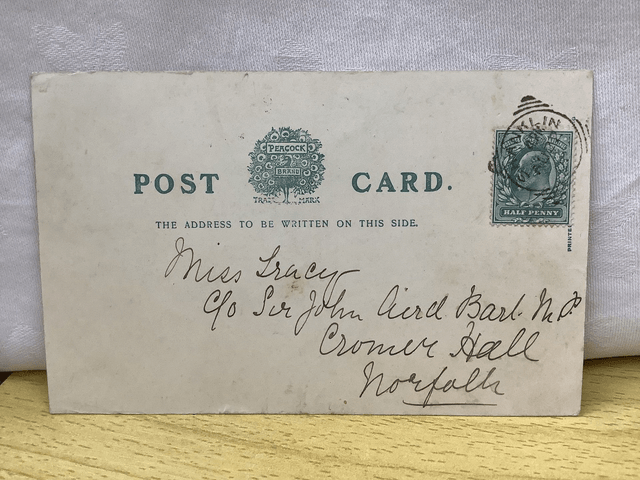 PEACOCK
BRAND
TRADE MARK
POST CARD.
THE ADDRESS TO BE WRITTEN ON THIS SIDE.
HALF PENNY
Miss Tracy
C/o Sir John Aird Bart. M.P.
Cromer Hall
Norfolk